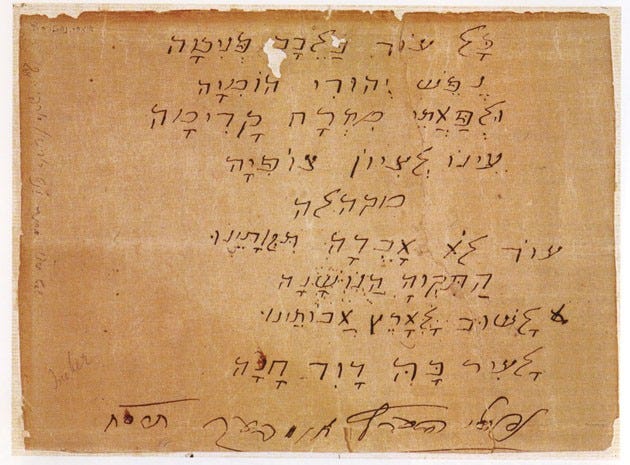 כָּל עוֹד בַּלֵּבָב פְּנִימָה
נֶפֶשׁ יְהוּדִי הוֹמִיָּה
וּלְפַאֲתֵי מִזְרָח קָדִימָה
עֵינוֹ לְצִיּוֹן צוֹפִיָּה
מקהלה
עוֹד לֹא אָבְדָה תִּקְוָתֵינוּ
הַתִּקְוָה הַנוֹשָׁנָה
לָשׁוּב לְאֶרֶץ אֲבוֹתֵינוּ
לָעִיר בָּהּ דָוִד חָנָה
נפתלי הערץ אימבער תרס״ח
Imber